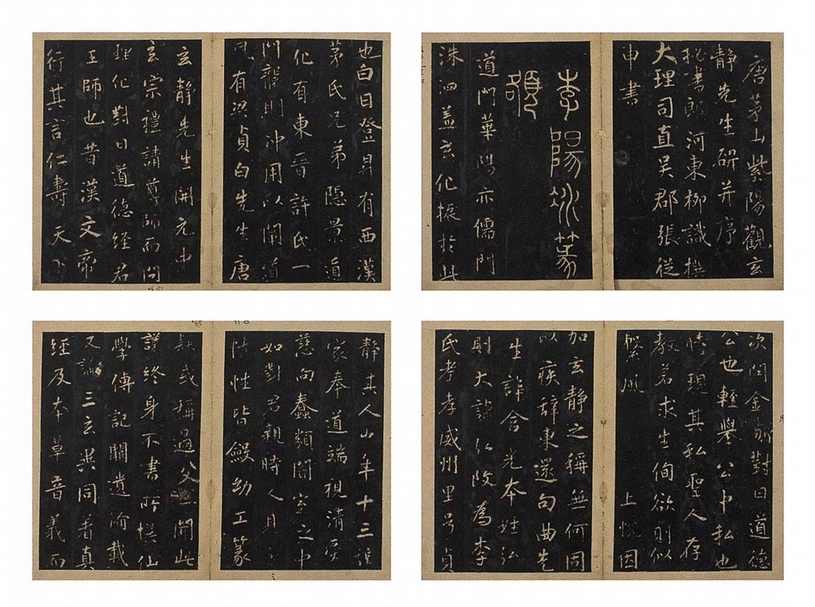 唐茅山紫陽觀玄
靜先生碑并序
秘書郎河東柳識撰
大理司直吳郡張從
申書
李陽冰篆
額
道門華陽亦儒門
洙泗蓋玄化振於此
也白日登昇有西漢
茅氏兄弟隱景遁
化有東晉許氏一
門龍則沖用以闡道
風有梁貞白先生唐
玄靜先生開元中
玄宗禮請尊師而問
理化對曰道德經君
王師也昔漢文帝
行其言仁壽天下
次問金鼎對曰道德
公也輕舉公中私也
時現其私聖人存
教若求生徇欲則似
繫風 上慨因
加玄靜之稱無何固
以疾辭東還句曲先
生諱含光本姓弘
則天諱以改為李
氏孝孝威州里号貞
靜其人年十三
家奉道端視清受
慈向蠢類闇室之中
如對君親時人見
性皆緩幼工篆
隸或稱過父一聞此
議終身不書所撰仙
學傳記闕遺備載
又論三玄異同著真
經及本草音義而